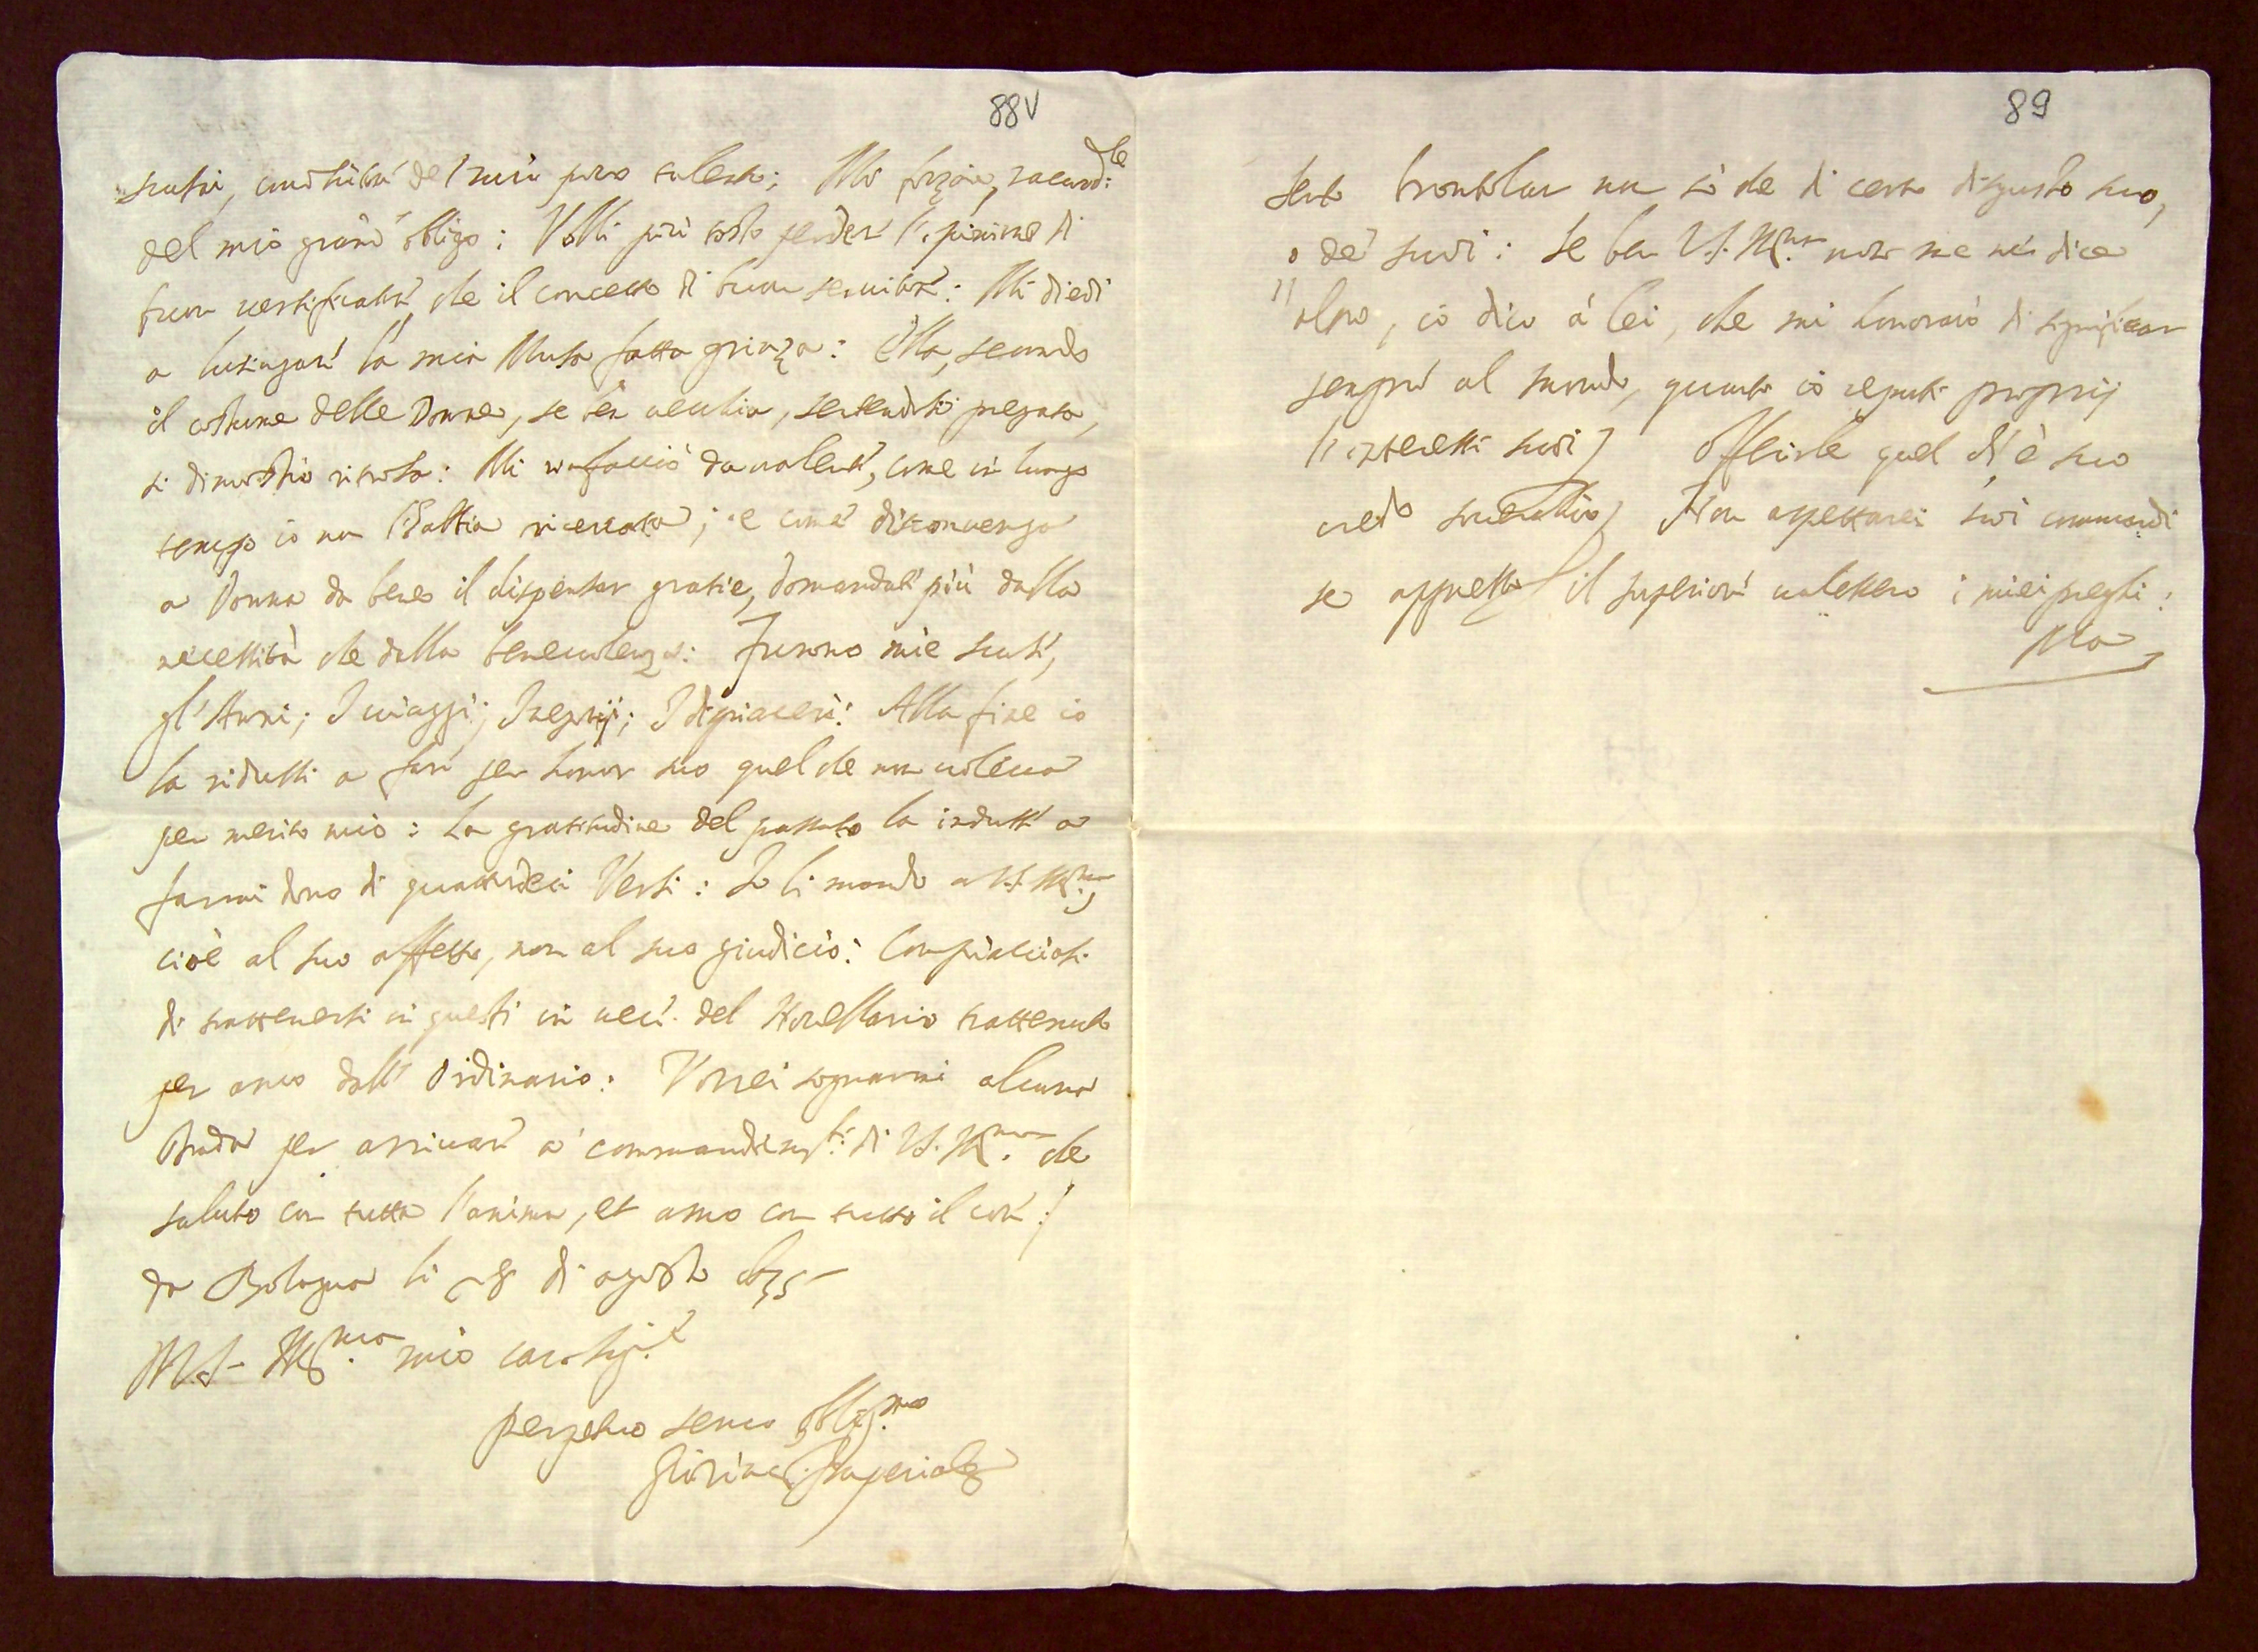 88v
scusai, del mio poco talento; Mi forzò, 
del mio grand' obligo: Volli più tosto perder l'opinione di
buon versificator che il concetto di buon servitor: Mi diedi
a lusingar la mia Musa fatta grinza: Ella, secondo
il costume delle Donne, se ben vecchia, sentendosi pregata,
si dimostrò ritrosa: Mi rinfacciò da valent', come in lungo
tempo io non l'habbia ricercata; e come disconvenga
a Donna da bene il dispensar gratie, domandate più dalla
necessità che dalla benevolenza: Furono mie scuse,
gl'Anni; I viaggi; I negotij; I dispiaceri: Alla fine io
la ridussi a far per honor suo quel che non voleva
per merito mio: La gratitudine del passato la indusse a
farmi dono di quattordeci Versi: Io li mando a V.S. Ill.ma,
cioè al suo affetto, non al suo giudicio: Compiacciasi
di trattenersi in questi in vece del Novellario trattenuto
per anco dall' Ordinario: Vorrei sognarmi alcuna
strada per arrivar a' commandamen.ti di V.S. Ill.ma che
saluto con tutta l'anima, et amo con tutto il cor:/
da Bologna li 28 di agosto
Ill.mo mio
perpetuo servo obblig.mo
Imperiale
89
Sento brontolar non sò che di certo disgusto suo,
o de' suoi: Se ben V.S. Ill.ma non me ne dice
altro, io dico à lei, che mi honorarò di significar
sempre al mondo, quanto io reputi proprij
l'interessi suoi; Offerirle quel ch'è suo
credo Non aspettarei suoi commandi
se appresso il superior valessero i miei preghi:
Ma